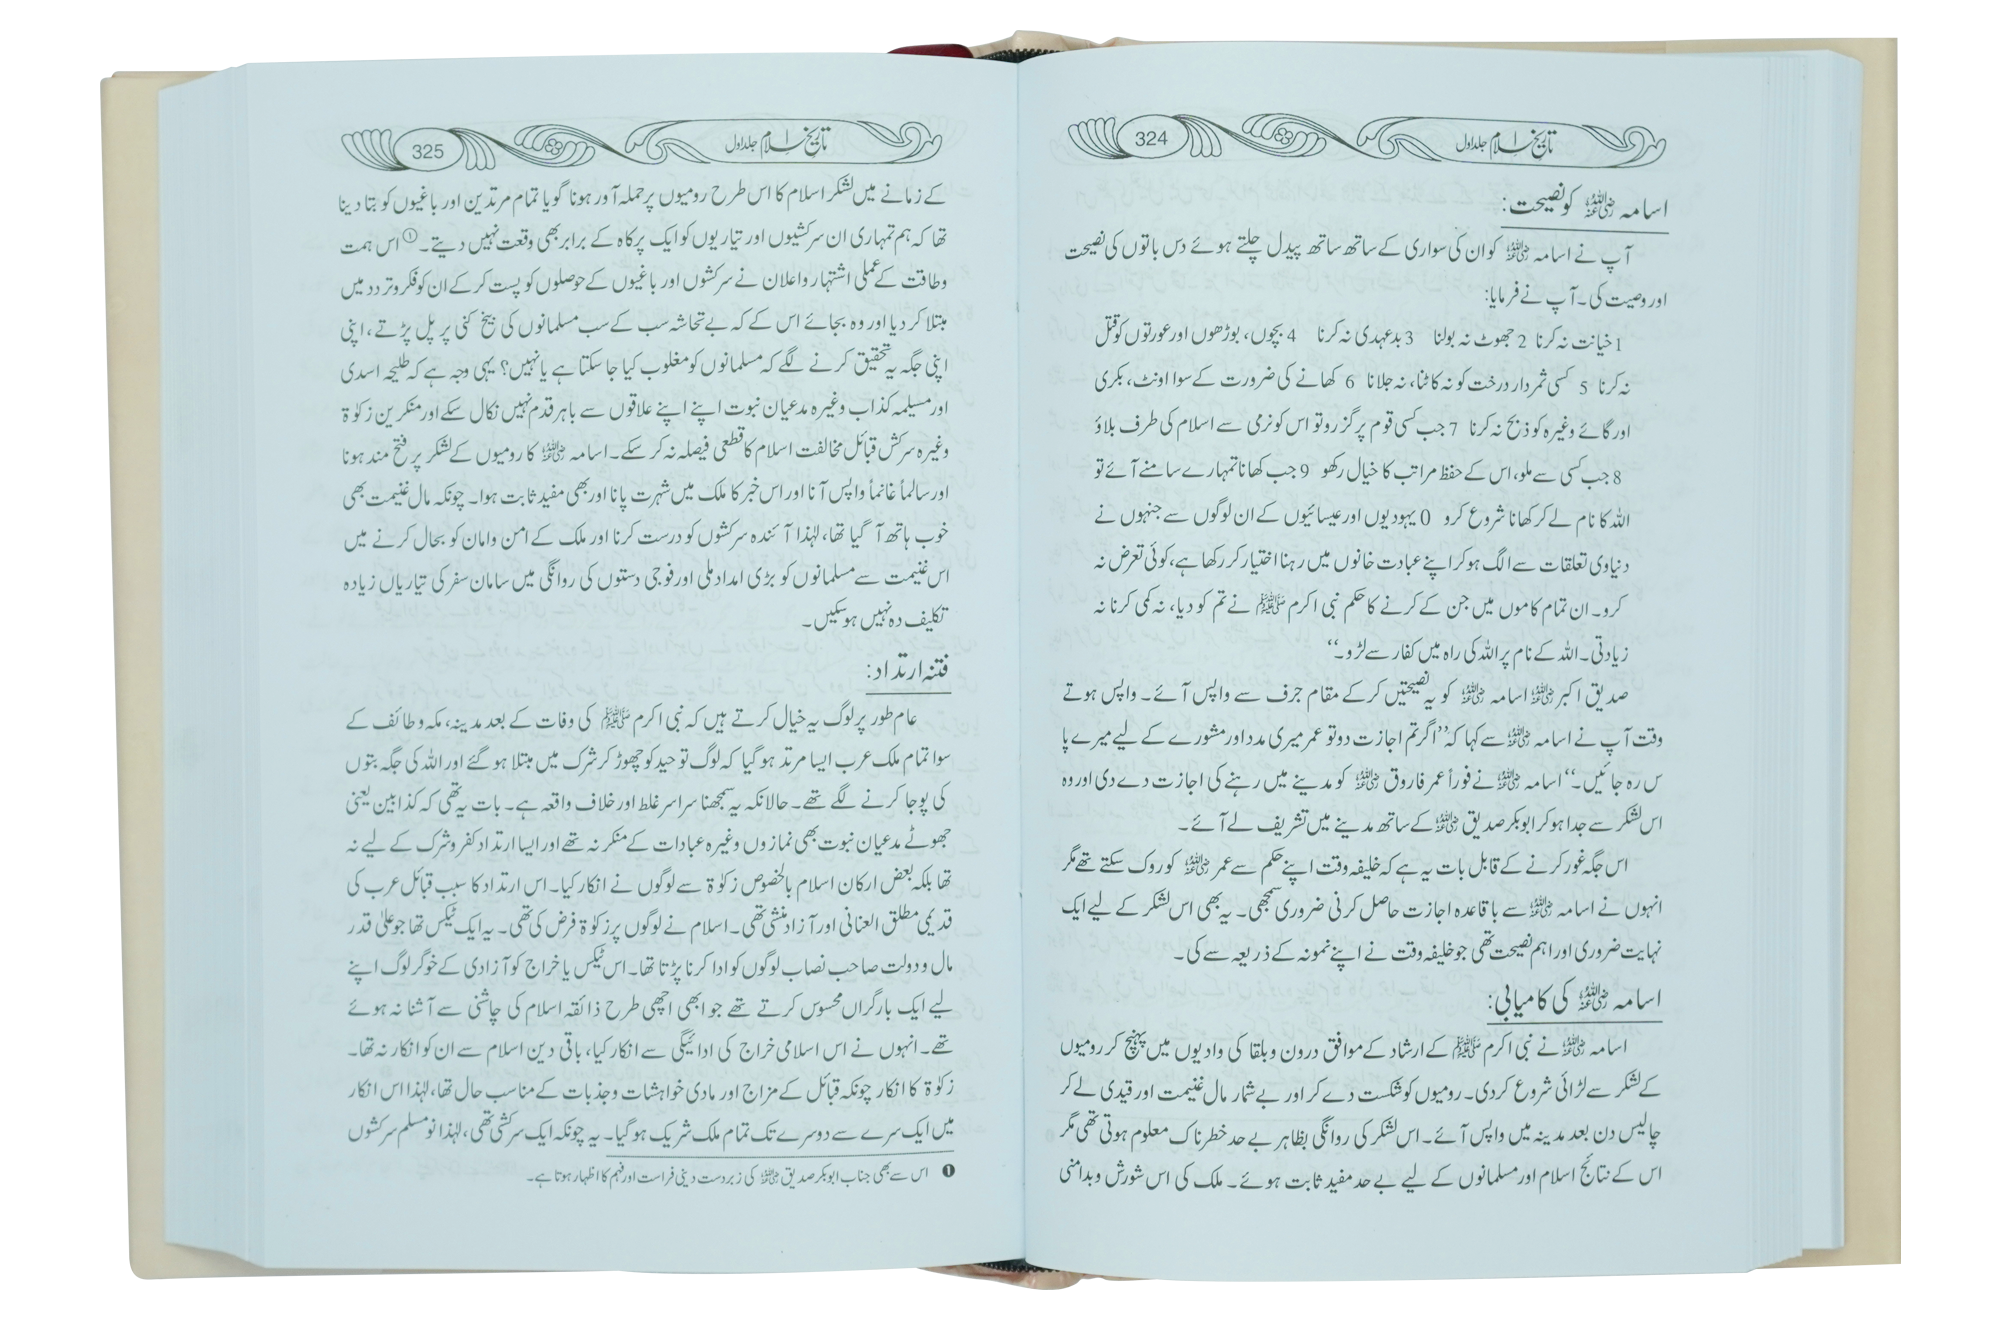 تاریخ اسلام جلد اول 324
اسامہ رضی اللہ عنہ کو نصیحت:
آپ نے اسامہ رضی اللہ عنہ کو ان کی سواری کے ساتھ ساتھ پیدل چلتے ہوئے دس باتوں کی نصیحت
اور وصیت کی۔ آپ نے فرمایا:
1 خیانت نہ کرنا 2 جھوٹ نہ بولنا 3 بدعہدی نہ کرنا 4 بچوں، بوڑھوں اور عورتوں کو قتل
نہ کرنا 5 کسی ثمردار درخت کو نہ کاٹنا، نہ جلانا 6 کھانے کی ضرورت کے سوا اونٹ، بکری
اور گائے وغیرہ کو ذبح نہ کرنا 7 جب کسی قوم پر گزرو تو اس کو نرمی سے اسلام کی طرف بلاؤ
8 جب کسی سے ملو، اس کے حفظ مراتب کا خیال رکھو 9 جب کھانا تمہارے سامنے آئے تو
اللہ کا نام لے کر کھانا شروع کرو 0 یہودیوں اور عیسائیوں کے ان لوگوں سے جنہوں نے
دنیاوی تعلقات سے الگ ہو کر اپنے عبادت خانوں میں رہنا اختیار کر رکھا ہے، کوئی تعرض نہ
کرو۔ ان تمام کاموں میں جن کے کرنے کا حکم نبی اکرم ﷺ نے تم کو دیا، نہ کمی کرنا نہ
زیادتی۔ اللہ کے نام پر اللہ کی راہ میں کفار سے لڑو۔‘‘
صدیق اکبر رضی اللہ عنہ اسامہ رضی اللہ عنہ کو یہ نصیحتیں کر کے مقام جرف سے واپس آئے۔ واپس ہوتے
وقت آپ نے اسامہ رضی اللہ عنہ سے کہا کہ ’’اگر تم اجازت دو تو عمر میری مدد اور مشورے کے لیے میرے پا
س رہ جائیں۔‘‘ اسامہ رضی اللہ عنہ نے فوراً عمر فاروق رضی اللہ عنہ کو مدینے میں رہنے کی اجازت دے دی اور وہ
اس لشکر سے جدا ہو کر ابوبکر صدیق رضی اللہ عنہ کے ساتھ مدینے میں تشریف لے آئے۔
اس جگہ غور کرنے کے قابل بات یہ ہے کہ خلیفہ وقت اپنے حکم سے عمر رضی اللہ عنہ کو روک سکتے تھے مگر
انہوں نے اسامہ رضی اللہ عنہ سے باقاعدہ اجازت حاصل کرنی ضروری سمجھی۔ یہ بھی اس لشکر کے لیے ایک
نہایت ضروری اور اہم نصیحت تھی جو خلیفہ وقت نے اپنے نمونہ کے ذریعہ سے کی۔
اسامہ رضی اللہ عنہ کی کامیابی:
اسامہ رضی اللہ عنہ نے نبی اکرم ﷺ کے ارشاد کے موافق درون و بلقا کی وادیوں میں پہنچ کر رومیوں
کے لشکر سے لڑائی شروع کر دی۔ رومیوں کو شکست دے کر اور بے شمار مال غنیمت اور قیدی لے کر
چالیس دن بعد مدینہ میں واپس آئے۔ اس لشکر کی روانگی بظاہر بے حد خطرناک معلوم ہوتی تھی مگر
اس کے نتائج اسلام اور مسلمانوں کے لیے بے حد مفید ثابت ہوئے۔ ملک کی اس شورش و بدامنی
تاریخ اسلام جلد اول 325
کے زمانے میں لشکر اسلام کا اس طرح رومیوں پر حملہ آور ہونا گویا تمام مرتدین اور باغیوں کو بتا دینا
تھا کہ ہم تمہاری ان سرکشیوں اور تیاریوں کو ایک پرکاہ کے برابر بھی وقعت نہیں دیتے۔① اس ہمت
و طاقت کے عملی اشتہار و اعلان نے سرکشوں اور باغیوں کے حوصلوں کو پست کر کے ان کو فکر و تردد میں
مبتلا کر دیا اور وہ بجائے اس کے کہ بے تحاشہ سب کے سب مسلمانوں کی بیخ کنی پر پل پڑتے، اپنی
اپنی جگہ یہ تحقیق کرنے لگے کہ مسلمانوں کو مغلوب کیا جا سکتا ہے یا نہیں؟ یہی وجہ ہے کہ طلیحہ اسدی
اور مسیلمہ کذاب وغیرہ مدعیان نبوت اپنے اپنے علاقوں سے باہر قدم نہیں نکال سکے اور منکرین زکوٰۃ
وغیرہ سرکش قبائل مخالفت اسلام کا قطعی فیصلہ نہ کر سکے۔ اسامہ رضی اللہ عنہ کا رومیوں کے لشکر پر فتح مند ہونا
اور سالماً غانماً واپس آنا اور اس خبر کا ملک میں شہرت پانا اور بھی مفید ثابت ہوا۔ چونکہ مال غنیمت بھی
خوب ہاتھ آ گیا تھا، لہٰذا آئندہ سرکشوں کو درست کرنا اور ملک کے امن و امان کو بحال کرنے میں
اس غنیمت سے مسلمانوں کو بڑی امداد ملی اور فوجی دستوں کی روانگی میں سامان سفر کی تیاریاں زیادہ
تکلیف دہ نہیں ہو سکیں۔
فتنہ ارتداد:
عام طور پر لوگ یہ خیال کرتے ہیں کہ نبی اکرم ﷺ کی وفات کے بعد مدینہ، مکہ و طائف کے
سوا تمام ملک عرب ایسا مرتد ہو گیا کہ لوگ توحید کو چھوڑ کر شرک میں مبتلا ہو گئے اور اللہ کی جگہ بتوں
کی پوجا کرنے لگے تھے۔ حالانکہ یہ سمجھنا سراسر غلط اور خلاف واقعہ ہے۔ بات یہ تھی کہ کذابین یعنی
جھوٹے مدعیان نبوت بھی نمازوں وغیرہ عبادات کے منکر نہ تھے اور ایسا ارتداد کفر و شرک کے لیے نہ
تھا بلکہ بعض ارکان اسلام بالخصوص زکوٰۃ سے لوگوں نے انکار کیا۔ اس ارتداد کا سبب قبائل عرب کی
قدیمی مطلق العنانی اور آزاد منشی تھی۔ اسلام نے لوگوں پر زکوٰۃ فرض کی تھی۔ یہ ایک ٹیکس تھا جو علیٰ قدر
مال و دولت صاحب نصاب لوگوں کو ادا کرنا پڑتا تھا۔ اس ٹیکس یا خراج کو آزادی کے خوگر لوگ اپنے
لیے ایک بار گراں محسوس کرتے تھے جو ابھی اچھی طرح ذائقہ اسلام کی چاشنی سے آشنا نہ ہوئے
تھے۔ انہوں نے اس اسلامی خراج کی ادائیگی سے انکار کیا، باقی دین اسلام سے ان کو انکار نہ تھا۔
زکوٰۃ کا انکار چونکہ قبائل کے مزاج اور مادی خواہشات و جذبات کے مناسب حال تھا، لہٰذا اس انکار
میں ایک سرے سے دوسرے تک تمام ملک شریک ہو گیا۔ یہ چونکہ ایک سرکشی تھی، لہٰذا نو مسلم سرکشوں
❶ اس سے بھی جناب ابوبکر صدیق رضی اللہ عنہ کی زبردست دینی فراست اور فہم کا اظہار ہوتا ہے۔